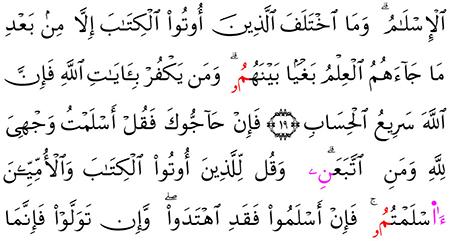 اَ۬لِاسْلَٰمُۖ وَمَا اَخْتَلَفَ اَلذِينَ أُوتُواْ اُ۬لْكِتَٰبَ إِلَّا مِنۢ بَعْدِ
مَا جَآءَهُمُ اُ۬لْعِلْمُ بَغْيَۢا بَيْنَهُمُۥۖ وَمَن يَكْفُرْ بِـَٔايَٰتِ اِ۬للَّهِ فَإِنَّ
اَ۬للَّهَ سَرِيعُ اُ۬لْحِسَابِ ١٩ فَإِنْ حَآجُّوكَ فَقُلْ أَسْلَمْتُ وَجْهِيَ
لِلَّهِ وَمَنِ اِ۪تَّبَعَنِۦۖ وَقُل لِّلَّذِينَ أُوتُواْ اُ۬لْكِتَٰبَ وَالْأُمِّيِّـۧنَ
ءَا۬سْلَمْتُمُۥۚ فَإِنْ أَسْلَمُواْ فَقَدِ اِ۪هْتَدَواْۖ وَّإِن تَوَلَّوْاْ فَإِنَّمَا